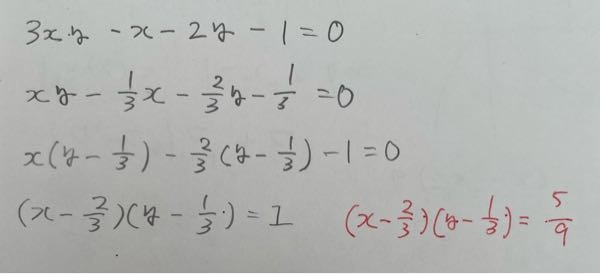 3xy - x - 2y - 1 = 0
xy - 1/3 x - 2/3 y - 1/3 = 0
x(y - 1/3) - 2/3 (y - 1/3) - 1 = 0
(x - 2/3)(y - 1/3) = 1 (x - 2/3)(y - 1/3) = 5/9